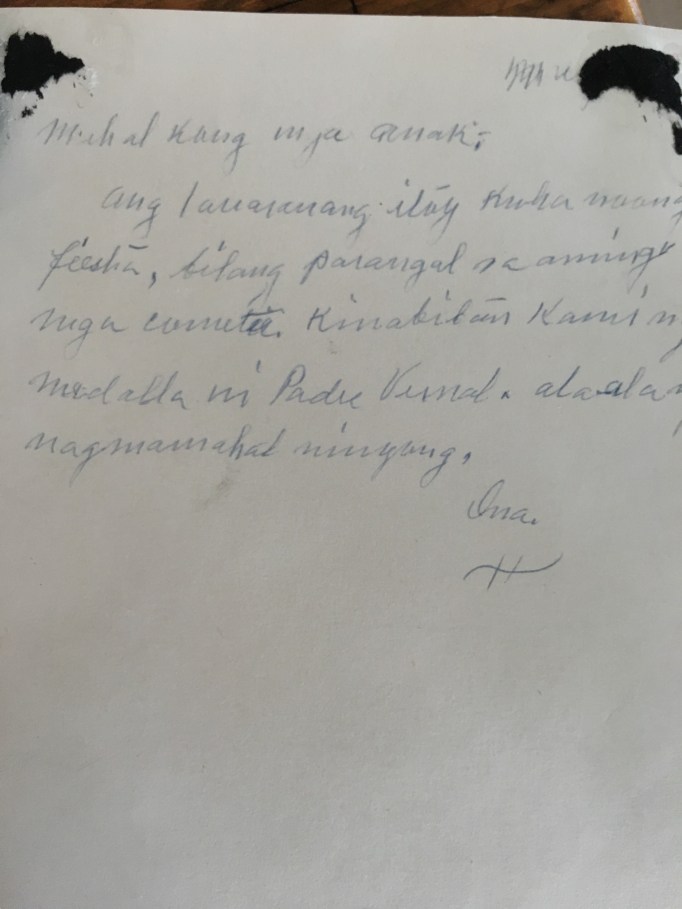 Mihal kong mga anak;
ang larawanang itoy kuha noong
fiesta, bilang parangal sa aming
mga comete. Kinabitan Kami ng
medalla ni Padre Vernal. ala-ala
nagmamahal ninyong,
Ina.